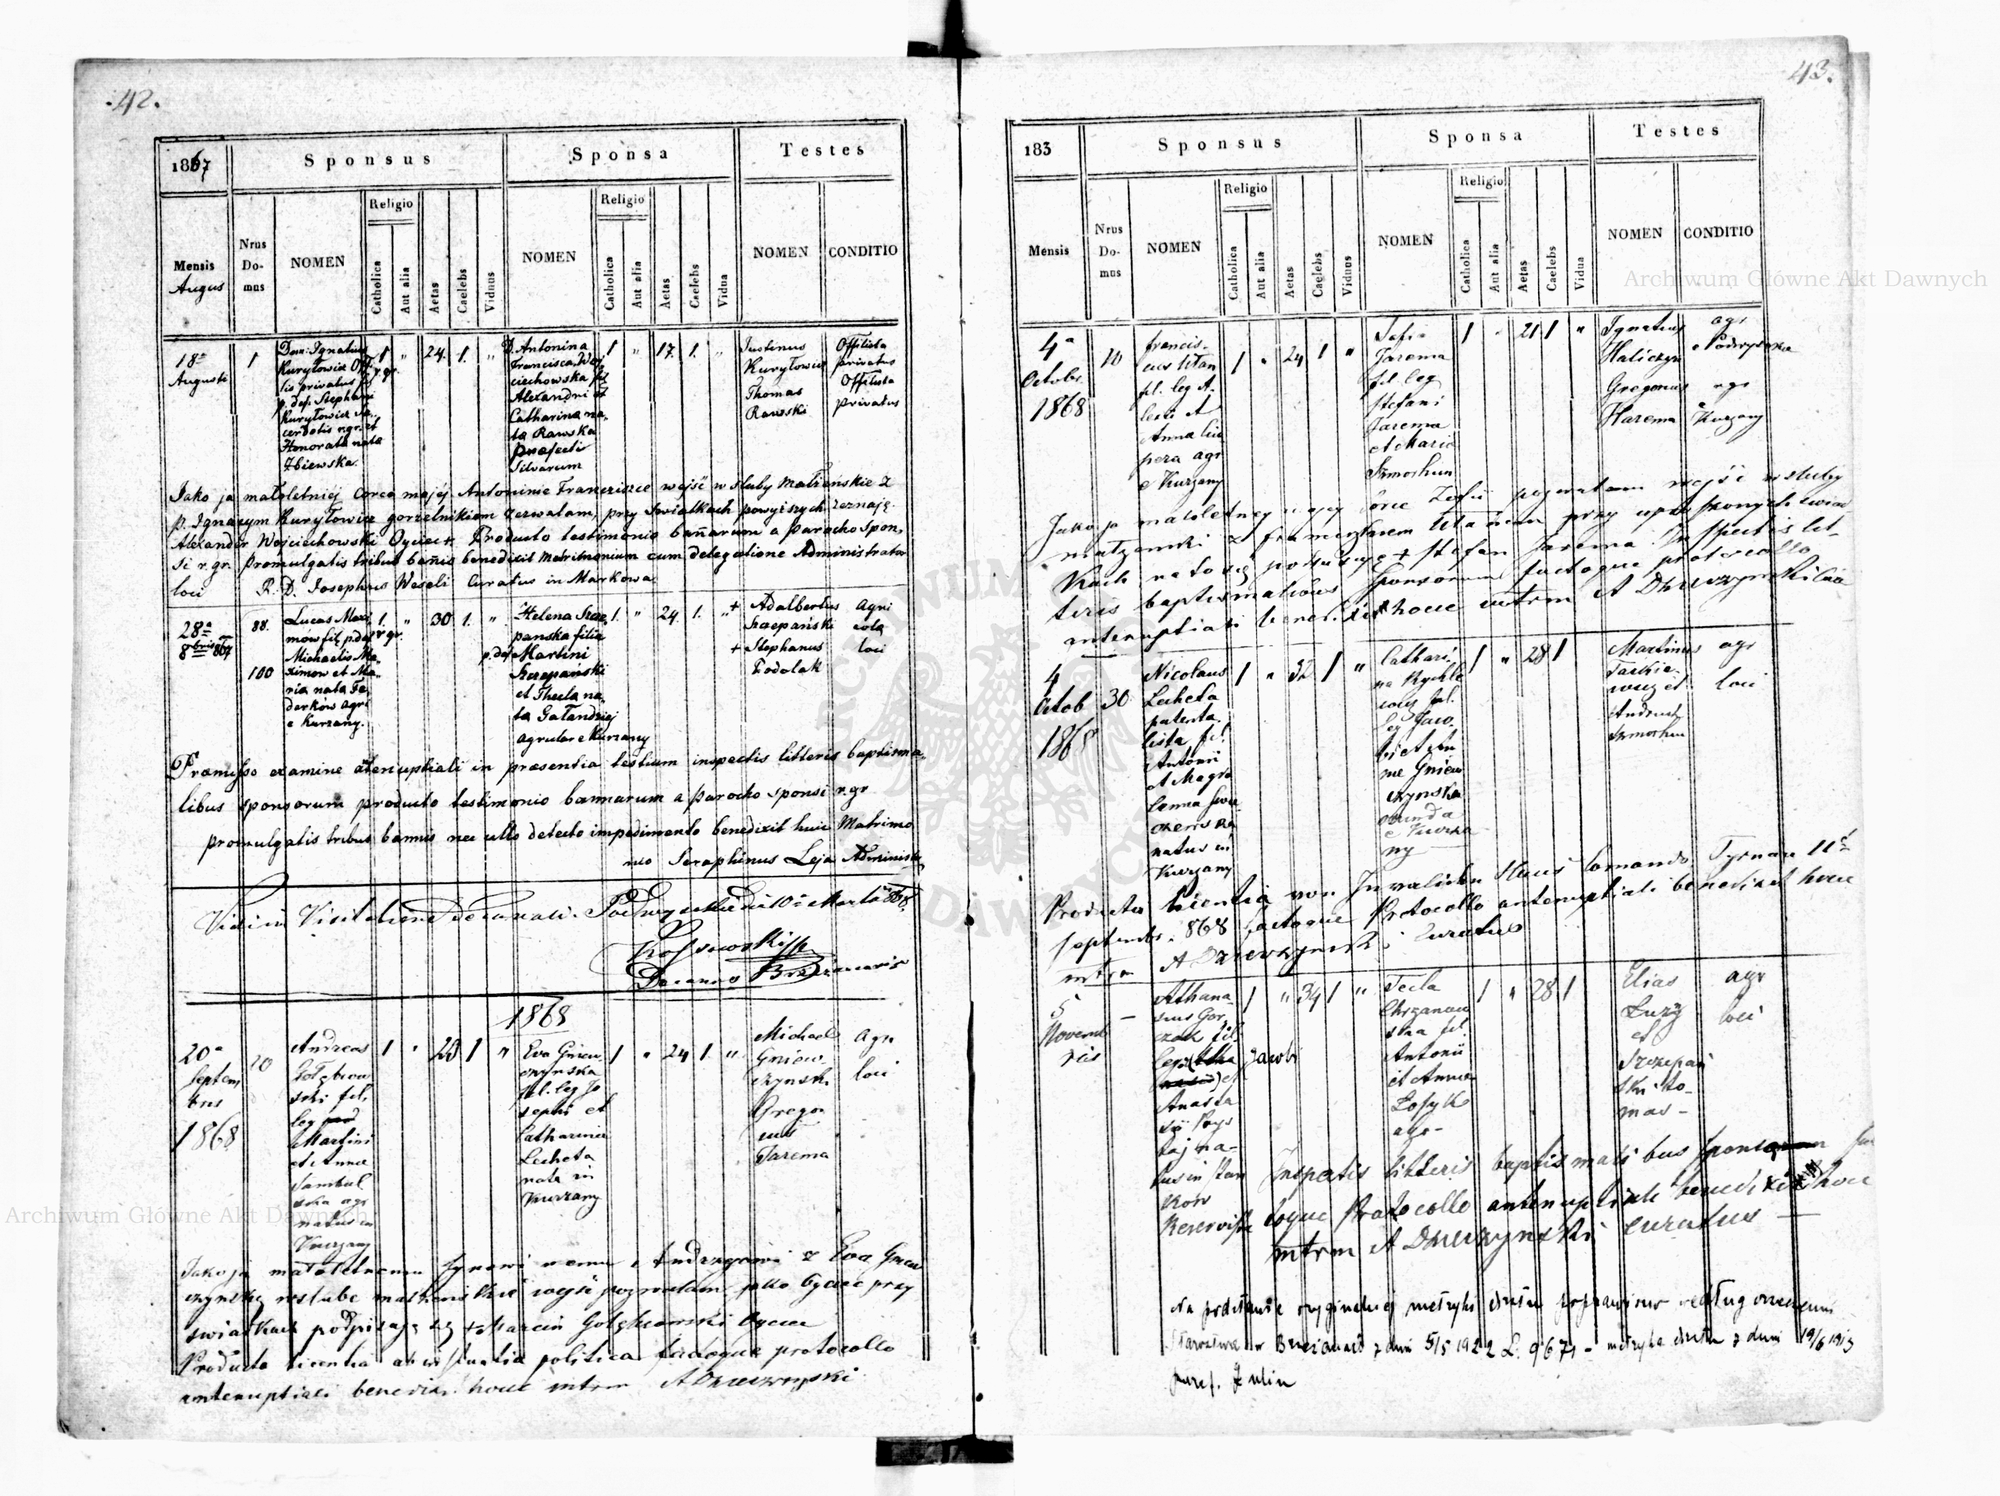 .42.
1867
Sponsus
Sponsa
Testes
Mensis
Augus
Nrus
Do-
mus
NOMEN
Religio
Catholica
Aut alia
Aetas
Caelebs
Viduus
NOMEN
Religio
Catholica
Aut alia
Aetas
Caelebs
Vidua
NOMEN
CONDITIO
18a
Augusti
1
Dom: Ignatius
Kuryłowicz Offi
lis privatus
p. def. Stephani
Kuryłowicz Sa
cerdotis r.gr. et
Honorata nata
Zbiewska.
1
r.gr.
"
24.
1.
"
D. Antonina
Francisca Woj
ciechowska fil
Alexandri et
Catharina na-
ta Rawska
Praefecti
Silvarum
1
"
17.
1.
"
Justinus
Kuryłowicz
Thomas
Rawski
Offilista
privatus
Offilista
privatus
Jako ja małoletniéj córce mojéj Antoninie Franciszce wejść w śluby Małżeńskie z
p. Ignacym Kuryłowicz gorzelnikiem zezwalam, przy świadkach powyższych zeznaję
Alexander Wojciechowski Oyciec. Producto testimonio bannarum a Parocho Spon-
si r.gr. promulgatis tribus bannis benedixit Matrimonium cum delegatione Administrator
loci R. D. Josephus Weseli Curatus in Markowa
28a
8bris 867
88.
100
Lucas Maxi
mow fil. p. def
Michaelis Ma-
ximow et Ma-
ria nata Fe-
derkow agri
e Kurzany.
1.
r gr.
"
30.
1.
"
Helena Szcze
panska filia
p. def Martini
Szczepański
et Thecla na-
ta Gałandziej
agricolar e Kurzany
1.
"
24.
1.
"
+ Adalbertus
Szczepański
+ Stephanus
Podolak
Agri
cola
loci
Præmisso examine antenuptiali in præsentia testium inspectis litteris baptisma
libus sponsorum producto testimonio bannarum a Parocho sponsi r.gr.
promulgatis tribus bannis nec ullo detecto impedimento benedixit huic Matrimo
nio Seraphinus Leja Administr.
Vidi in Visitatione Decanali. Podwysokie die 10a Marta 868.
Decanus Brzezanensis
1868
20a
Septem
bris
1868
20
Andreas
Gołębiow
ski fil.
leg
Martini
et Anna
Sambal
ska agr
natus in
Kurzany
1
"
23
1
"
Eva Gniew
czynska
fil. leg Jo
sephi et
Catharina
Lecheta
nata in
Kurzany
1
"
24
1.
"
Michael
Gniew
czynski
Grego
rius
Jarema
Agr.
loci
Jako ja małoletniemu synowi memu Andrzejowi z Eva Gniew
czynską w śluby małżeńskie wejść pozwalam jako Oyciec przy
świadkach podpisaję się + Marcin Gołębiowski Oyciec
Producta licentia ab instantia politica factoque protocollo
antenuptiali benedixit huic mtrm A Dzierzynski
43.
183
Sponsus
Sponsa
Testes
Mensis
Nrus
Do-
mus
NOMEN
Religio
Catholica
Aut alia
Aetas
Caelebs
Viduus
NOMEN
Religio
Catholica
Aut alia
Aetas
Caelebs
Vidua
NOMEN
CONDITIO
4a
Octobr.
1868
10
Francis-
cus Ułan
fil. leg A-
lexii et
Anna
agr
e Kurzany
1
"
24
1
"
Sofia
Jarema
fil. leg
Stefani
Jarema
et Maria
Szmorhun
1
"
21
1
"
Ignatius
Haliczyn
Gregorius
Harema
agr
e Podwysokie
agr
e Kurzany
Jako ja małoletniey mojey córce Zofii pozwalam wejść w śluby
małżenski z Franciszkiem Ułanem przy upr
kach na to się podpisuję + Stefan Jarema Inspectis lit-
teris baptismalibus sponsorum factoque protocollo
antenuptiali benedixit huic mtrm A Dzierzynski
4
Octob
1868
30
Nicolaus
Lecheta
patenta
lista fil.
Antonii
et Magda
lenna
natus in
Kurzany
1
"
32
1
"
Cathari
na Rychle
fil.
leg Jaco
bi et An
na Gniew
czynska
oriunda
e Kurza
ny
1
"
28
1
Martinus
et
Andreas
Szmorhun
agr
loci
Producta licentia von Invaliden Haus Comando Tyrnau 11a
septembr. 868 factoque Protocollo antenuptiali benedixit huic
mtrm A Dzierzynski Curatus
5
Novemb
ris
—
Athana-
sius Gor
czak fil.
leg Jacobi
et
Anasta
sii
na-
tus in
Reservist
1
"
34
1
"
Tecla
Chrzanow
ska fil.
Antonii
et Anna
Łosyk
agr-
1
"
28
1
Elias
Łuży
et
Szczepań
ski To-
mas -
agr
loci
Inspectis litteris baptismalibus sponsorum
toque Protocollo antenuptiali benedixit huic
mtrm A Dzierzynski curatus —
Na podstawie oryginalnej metryki chrztu poprawiono według orzeczenia
Starostwa w Brzeżanach z dnia 5/5 1922 L. 9671 - metryka chrztu z dnia 19/6 1913
Archiwum Główne Akt Dawnych
Archiwum Główne Akt Dawnych
ARCHIWUM GŁÓWNE AKT DAWNYCH